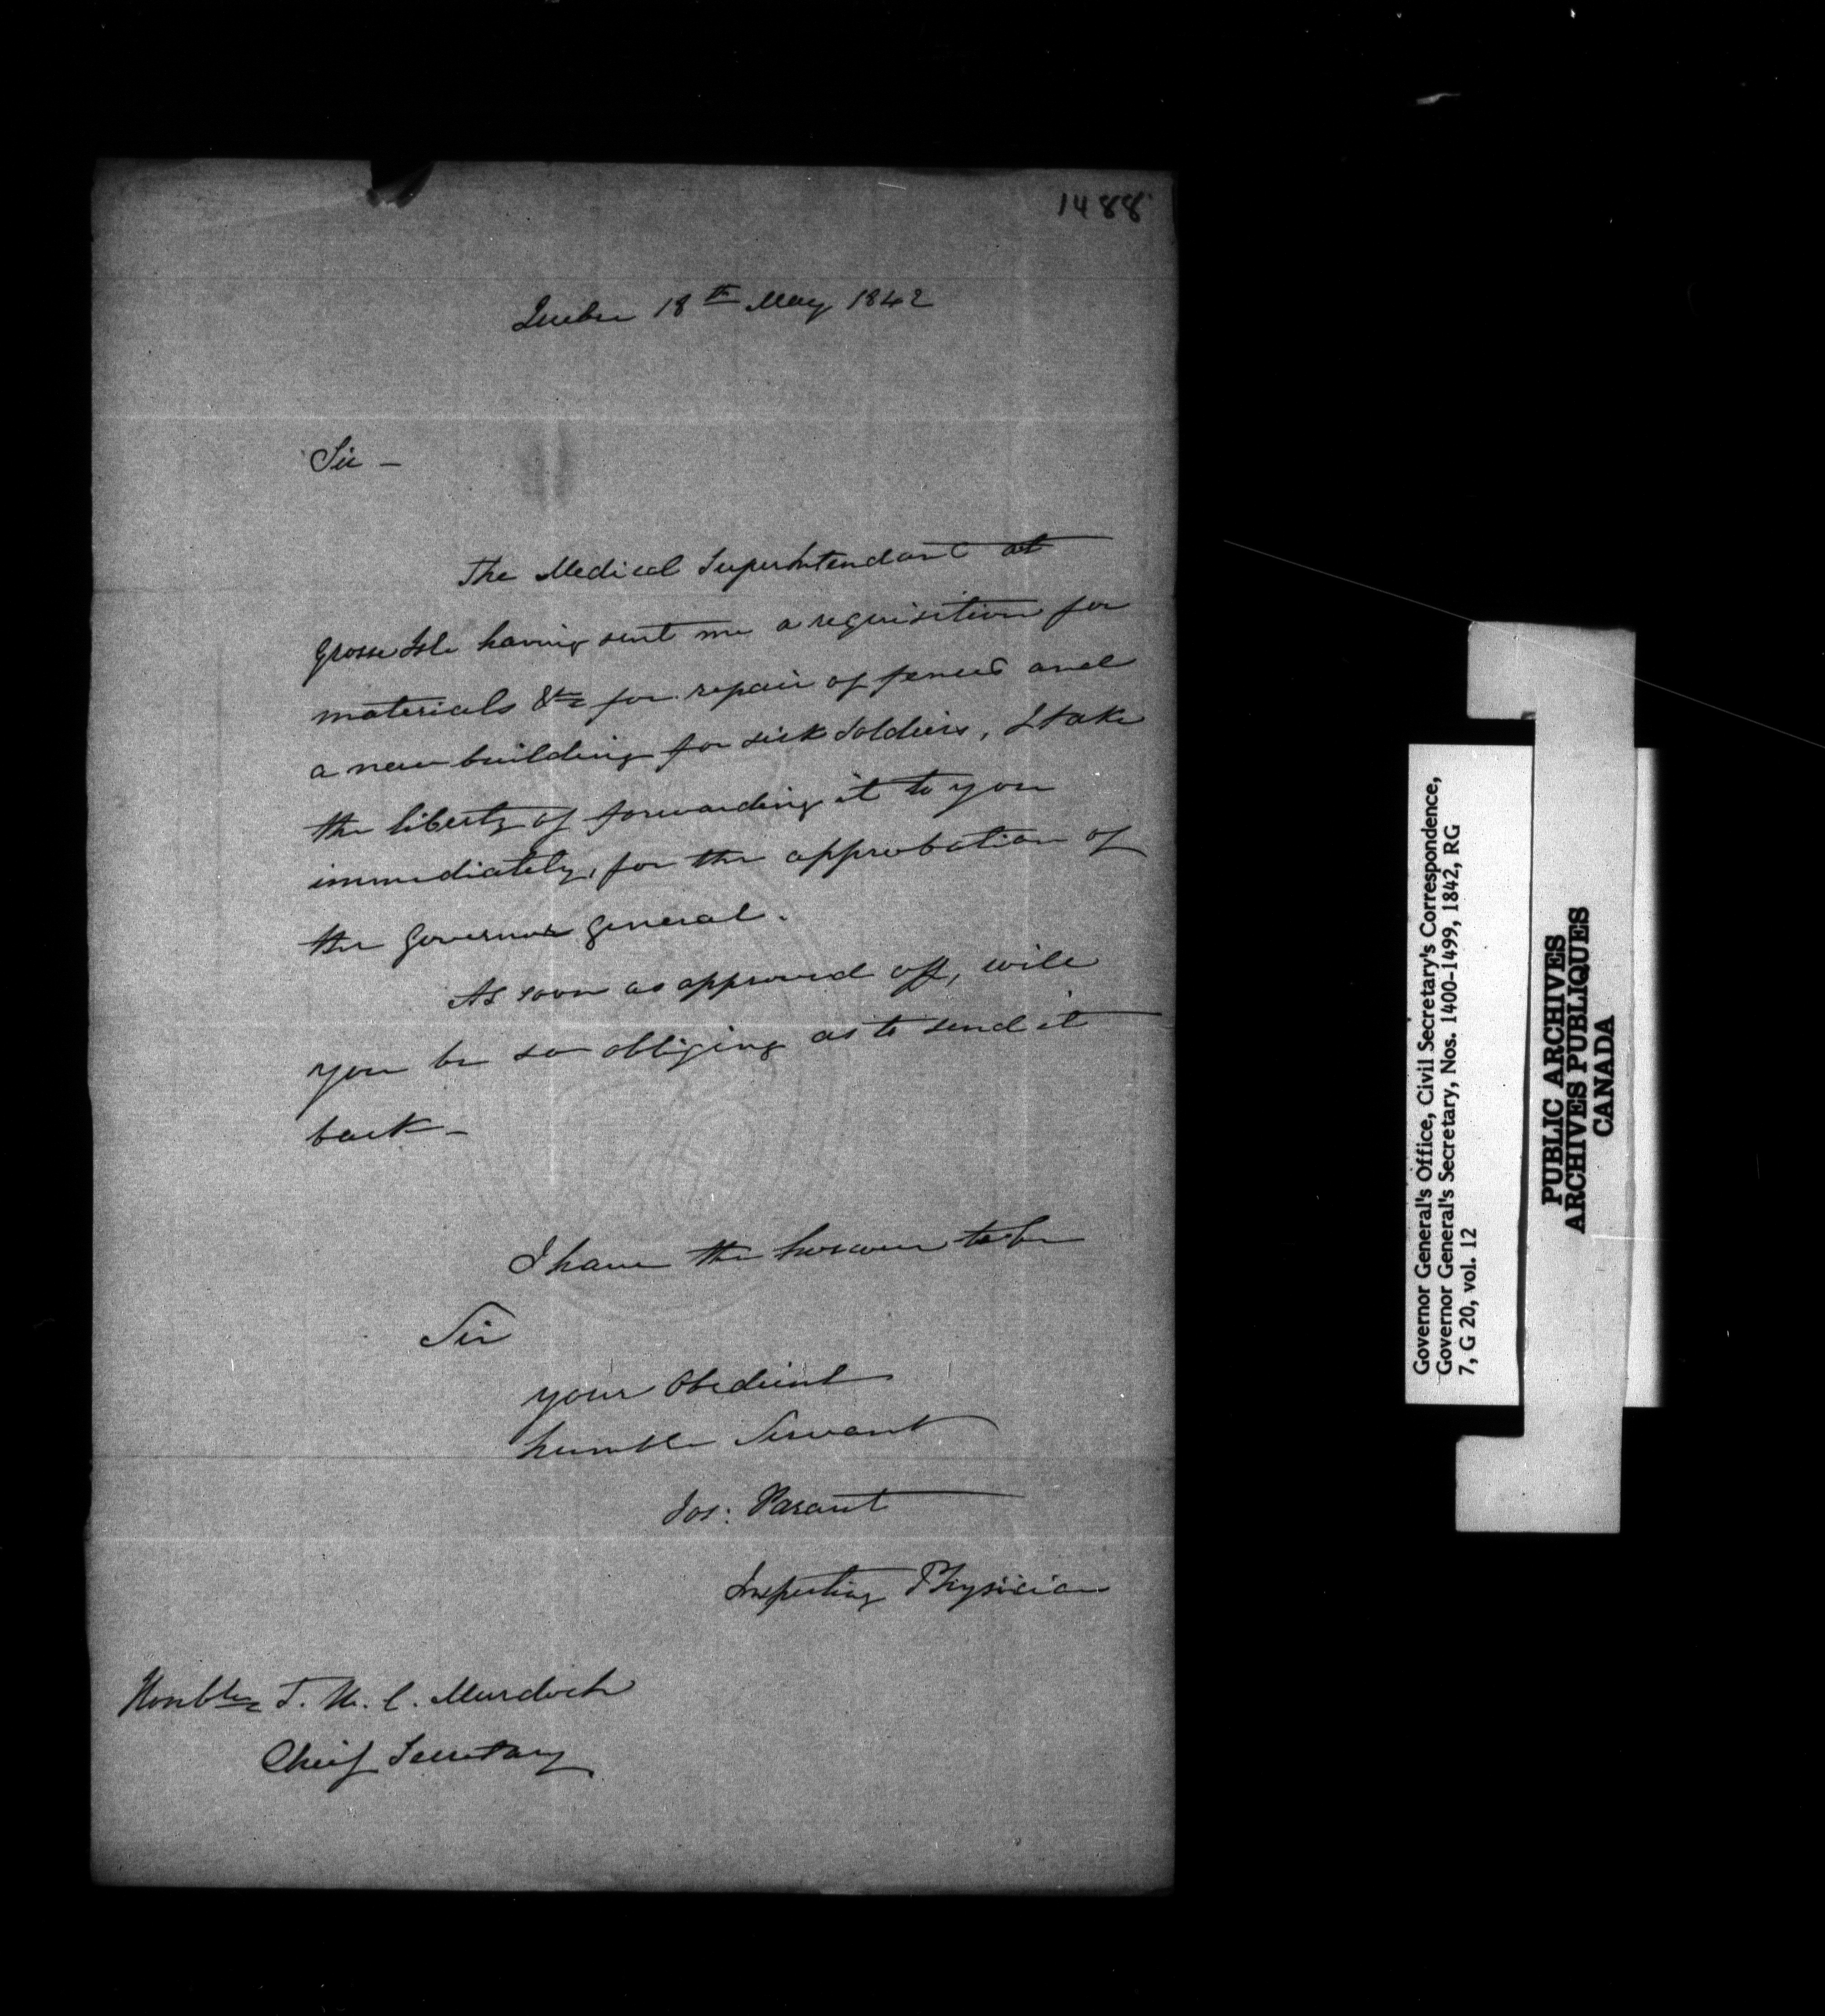 1488
Quebec 18th May 1842
Sir –
The Medical Superintendant at
Grosse Isle having sent me a requisition for
materials &c for repair of fences and
a new building for sick Soldiers, I take
the liberty of forwarding it to you
immediately, for the approbation of
the Governor General.
As soon as approved off, will
you be so obliging as to send it
back –
I have the honour to be
Sir
your Obedient
humble Servant
Jos: Parant
Inspecting Physician
Honble T. W. C. Murdoch
Cheif Secretary
Governor General's Office, Civil Secretary's Correspondence,
Governor General's Secretary, Nos. 1400-1499, 1842, RG
7, G 20, vol. 12
PUBLIC ARCHIVES
ARCHIVES PUBLIQUES
CANADA